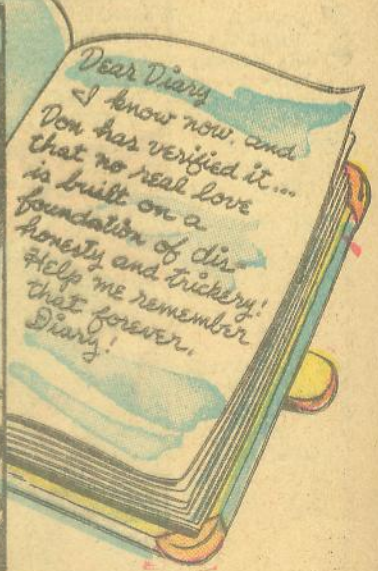 Dear Diary
I know now, and
Don has verified it...
that no real love
is built on a
foundation of dis-
honesty and trickery!
Help me remember
that forever,
Diary!